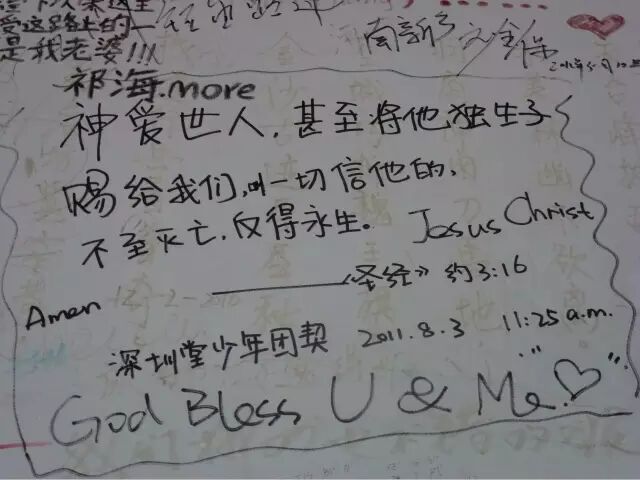 是我老婆!!!
祁海.more
神爱世人,甚至将他独生子
赐给我们,叫一切信他的,
不至灭亡,反得永生。 Jesus Christ
《圣经》约3:16
Amen
深圳堂少年团契 2011.8.3 11:25 a.m.
God Bless U & Me